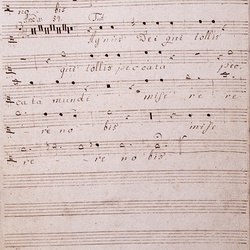 no bis
Agnus Dei qui tollis
qui tollis peccata pec
cata mundi mise re re
re no bis mise
re re no bis